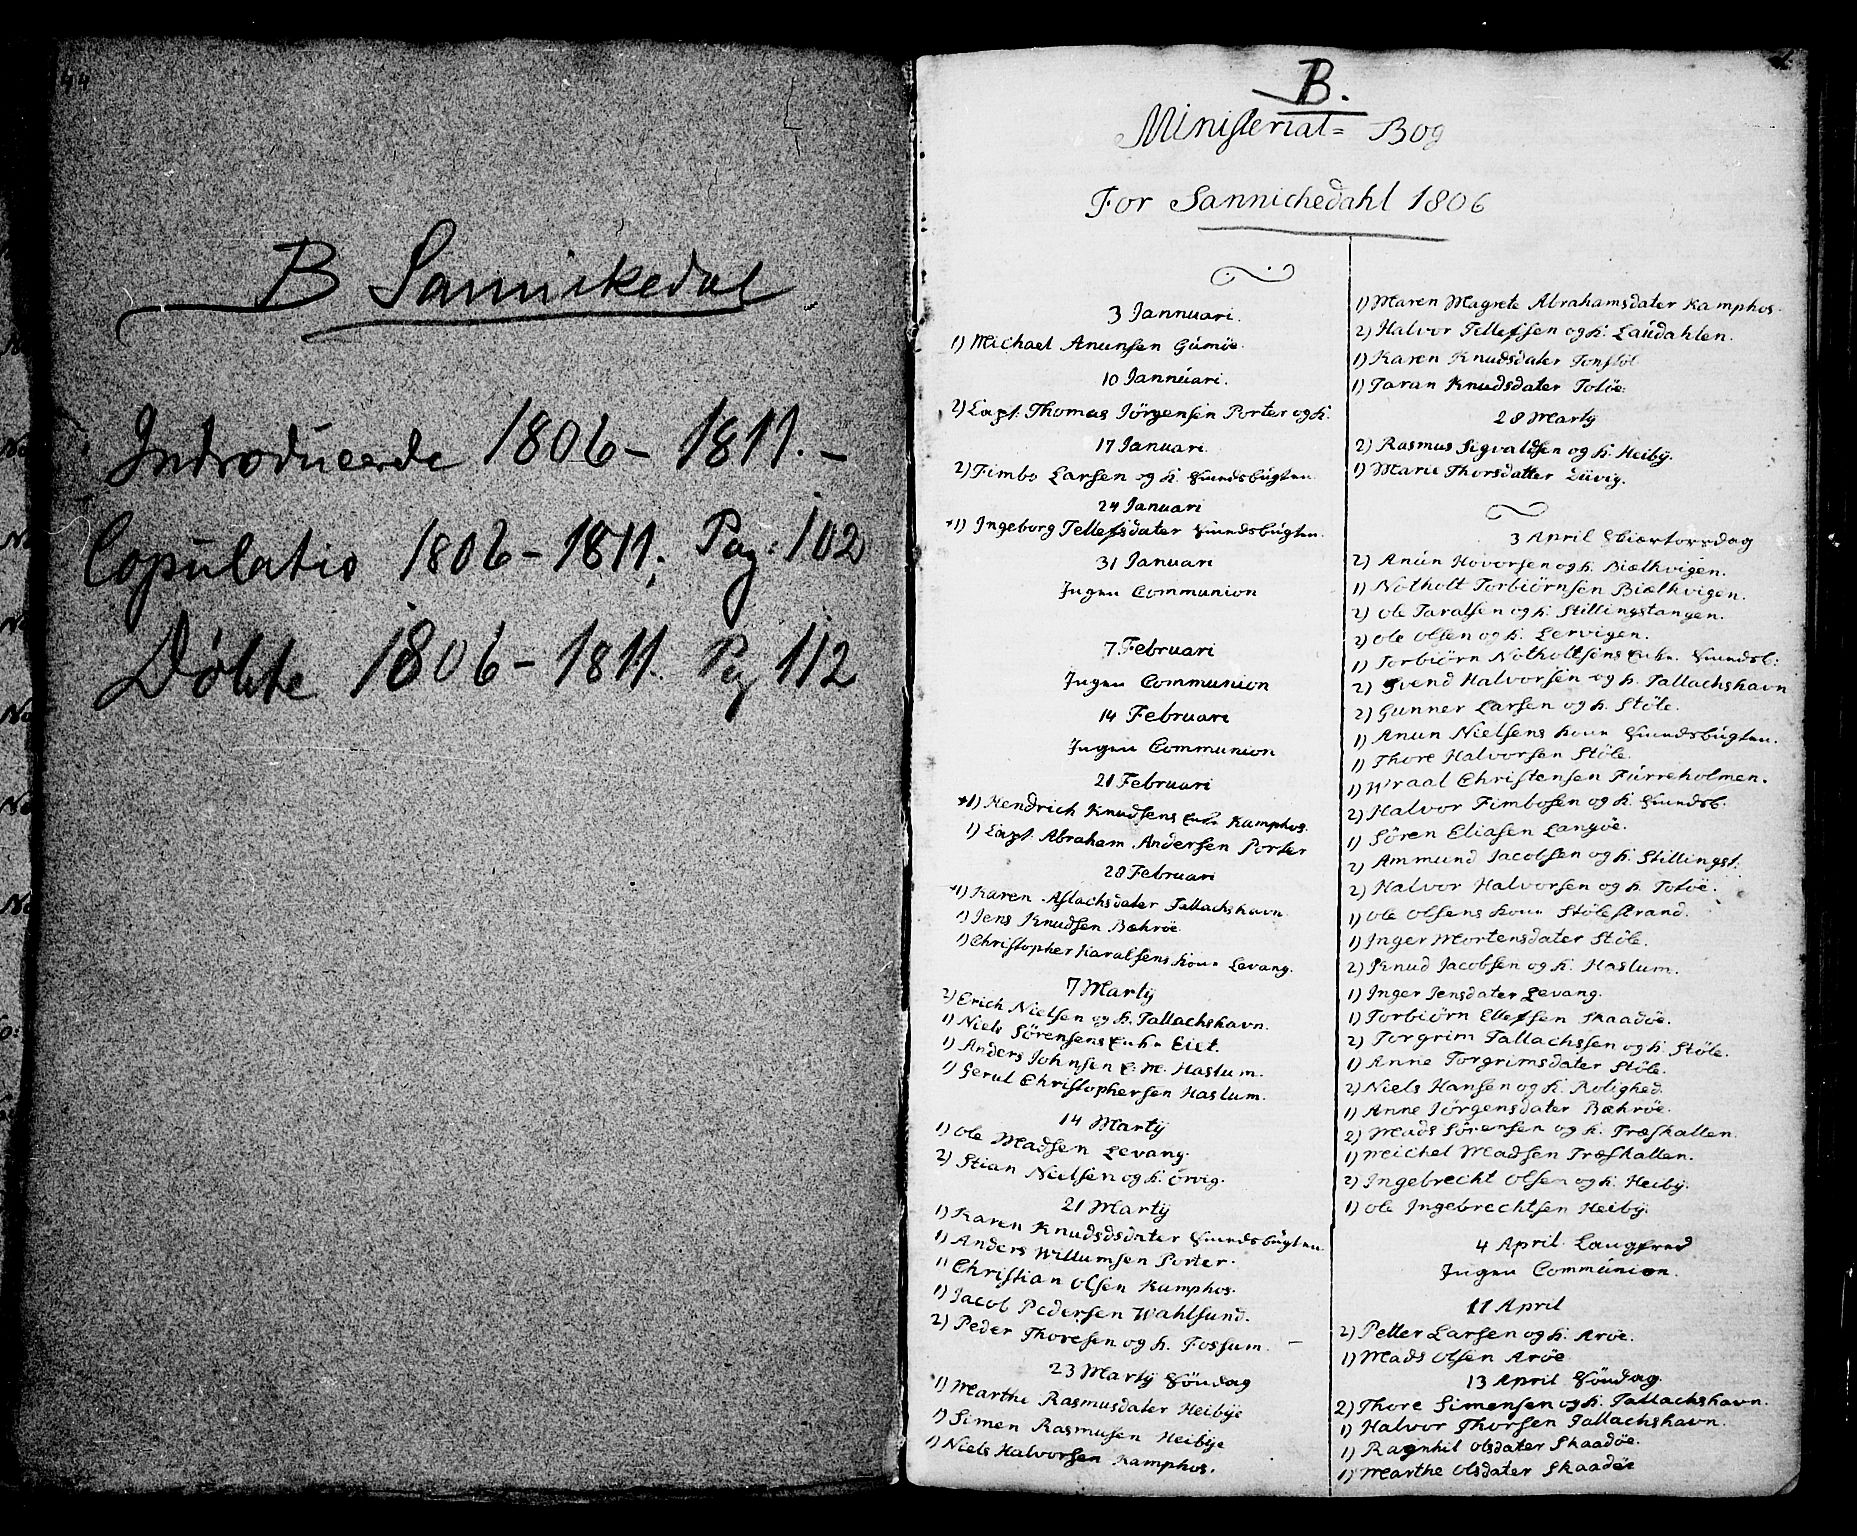 B Sannikedal
Introducerede 1806 - 1811. -
Copulatio 1806 - 1811. Pag: 102
Døbte 1806 - 1811. Pag 112
B.
Ministerial= Bog
For Sannichedahl 1806
3 Jannuari.
1) Michael Anunsen Gümöe.
10 Jannüari.
2) Capt: Thomas Jörgensen Porter og K:
17 Januari.
2) Fimbo Larsen og K: Smedsbügten.
24 Januari
*1) Ingeborg Tellefsdater Smedsbügten.
31 Januari
Ingen Communion
7 Februari
Ingen Communion
14 Februari
Ingen Communion
21 Februari
*1) Hendrich Knudsens Enke Kamphos.
1) Capt. Abraham Andersen Porter
28 Februari
*1) Karen Aslachsdater Tallachshavn
1) Jens Knudsen Bæhröe
1) Christopher Karalsens Kone Levang.
7 Martÿ
2) Erich Nielsen og K. Tallachshavn.
1) Niels Sörensens Enke Eiet.
1) Anders Johnsen E: M. Haslum.
1) Gerul Christophersen Haslum.
14 Martÿ
1) Ole Madsen Levang.
2) Stian Nielsen og K: Örvig.
21 Martÿ
1) Karen Knudsdsdater Smedsbügten
1) Anders Willumsen Porter.
1) Christian Olsen Kamphos.
1) Jacob Pedersen Wahlsund.
2) Peder Thoresen og K. Fossum. –
23 Martÿ Söndag
1) Marthe Rasmusdater Heibÿe
1) Simen Rasmusen Heibÿe
1) Niels Halvorsen Kamphos.
1) Maren Magrete Abrahamsdater Kamphos.
2) Halvor Tellefsen og K: Laudahlen.
1) Karen Knudsdater Tonstöl
1) Taran Knudsdater Totöe.
28 Martÿ
2) Rasmus Sigvaldsen og K: Heibÿ.
1) Marie Thorsdatter Düvig.
3 April Skiærtorsdag
2) Anün Hovorsen og K: Biælkvigen.
1) Notholt Torbiörnsen Biælkvigen.
2) Ole Taralsen og K: Stillingstangen.
2) Ole Olsen og K. Lervigen.
1) Torbiörn Notholtsens Enke Smedsb:
2) Svend Halvorsen og K. Tallachshavn
2) Gunner Larsen og K. Stöle.
1) Anun Nielsens Kone Smedsbügten.
1) Thore Halvorsen Stöle.
1) Wraal Christensen Fürreholmen.
2) Halvor Fimbosen og K: Smedsb.
1) Sören Eliasen Langöe.
2) Ammund Jacobsen og K: Stillingst:
2) Halvor Halvorsen og K. Totöe.
1) Ole Olsens Kone Stölestrand.
1) Inger Mortensdater Stöle.
2) Knud Jacobsen og K. Haslum.
1) Inger Jensdater Levang.
1) Torbiörn Ellefsen Skaadöe.
2) Torgrim Tallachssen og K: Stöle.
1) Anne Torgrimsdater Stöle.
2) Niels Hansen og K: Rolighed.
1) Anne Jörgensdater Bæhröe.
2) Mads Sörensen og K. Træskallen.
1) Meichel Madsen Træskallen.
2) Ingebrecht Olsen og K: Heibÿ.
1) Ole Ingebrechtsen Heibÿ.
4 April. Langfred
Ingen Communion.
11 April
2) Petter Larsen og K: Aröe.
1) Mads Olsen Aröe
13 April Söndag.
2) Thore Simensen og K: Tallachshavn.
1) Halvor Thorsen Tallachshavn.
1) Ragnhil Olsdater Skaadöe.
1) Marthe Olsdater Skaadöe